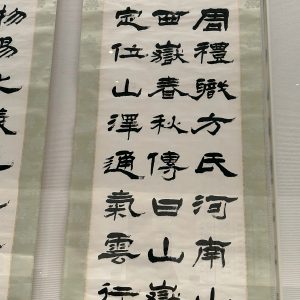 周禮職方氏河南山
西嶽春秋傳曰山嶽
定位山澤通氣雲行
物之義